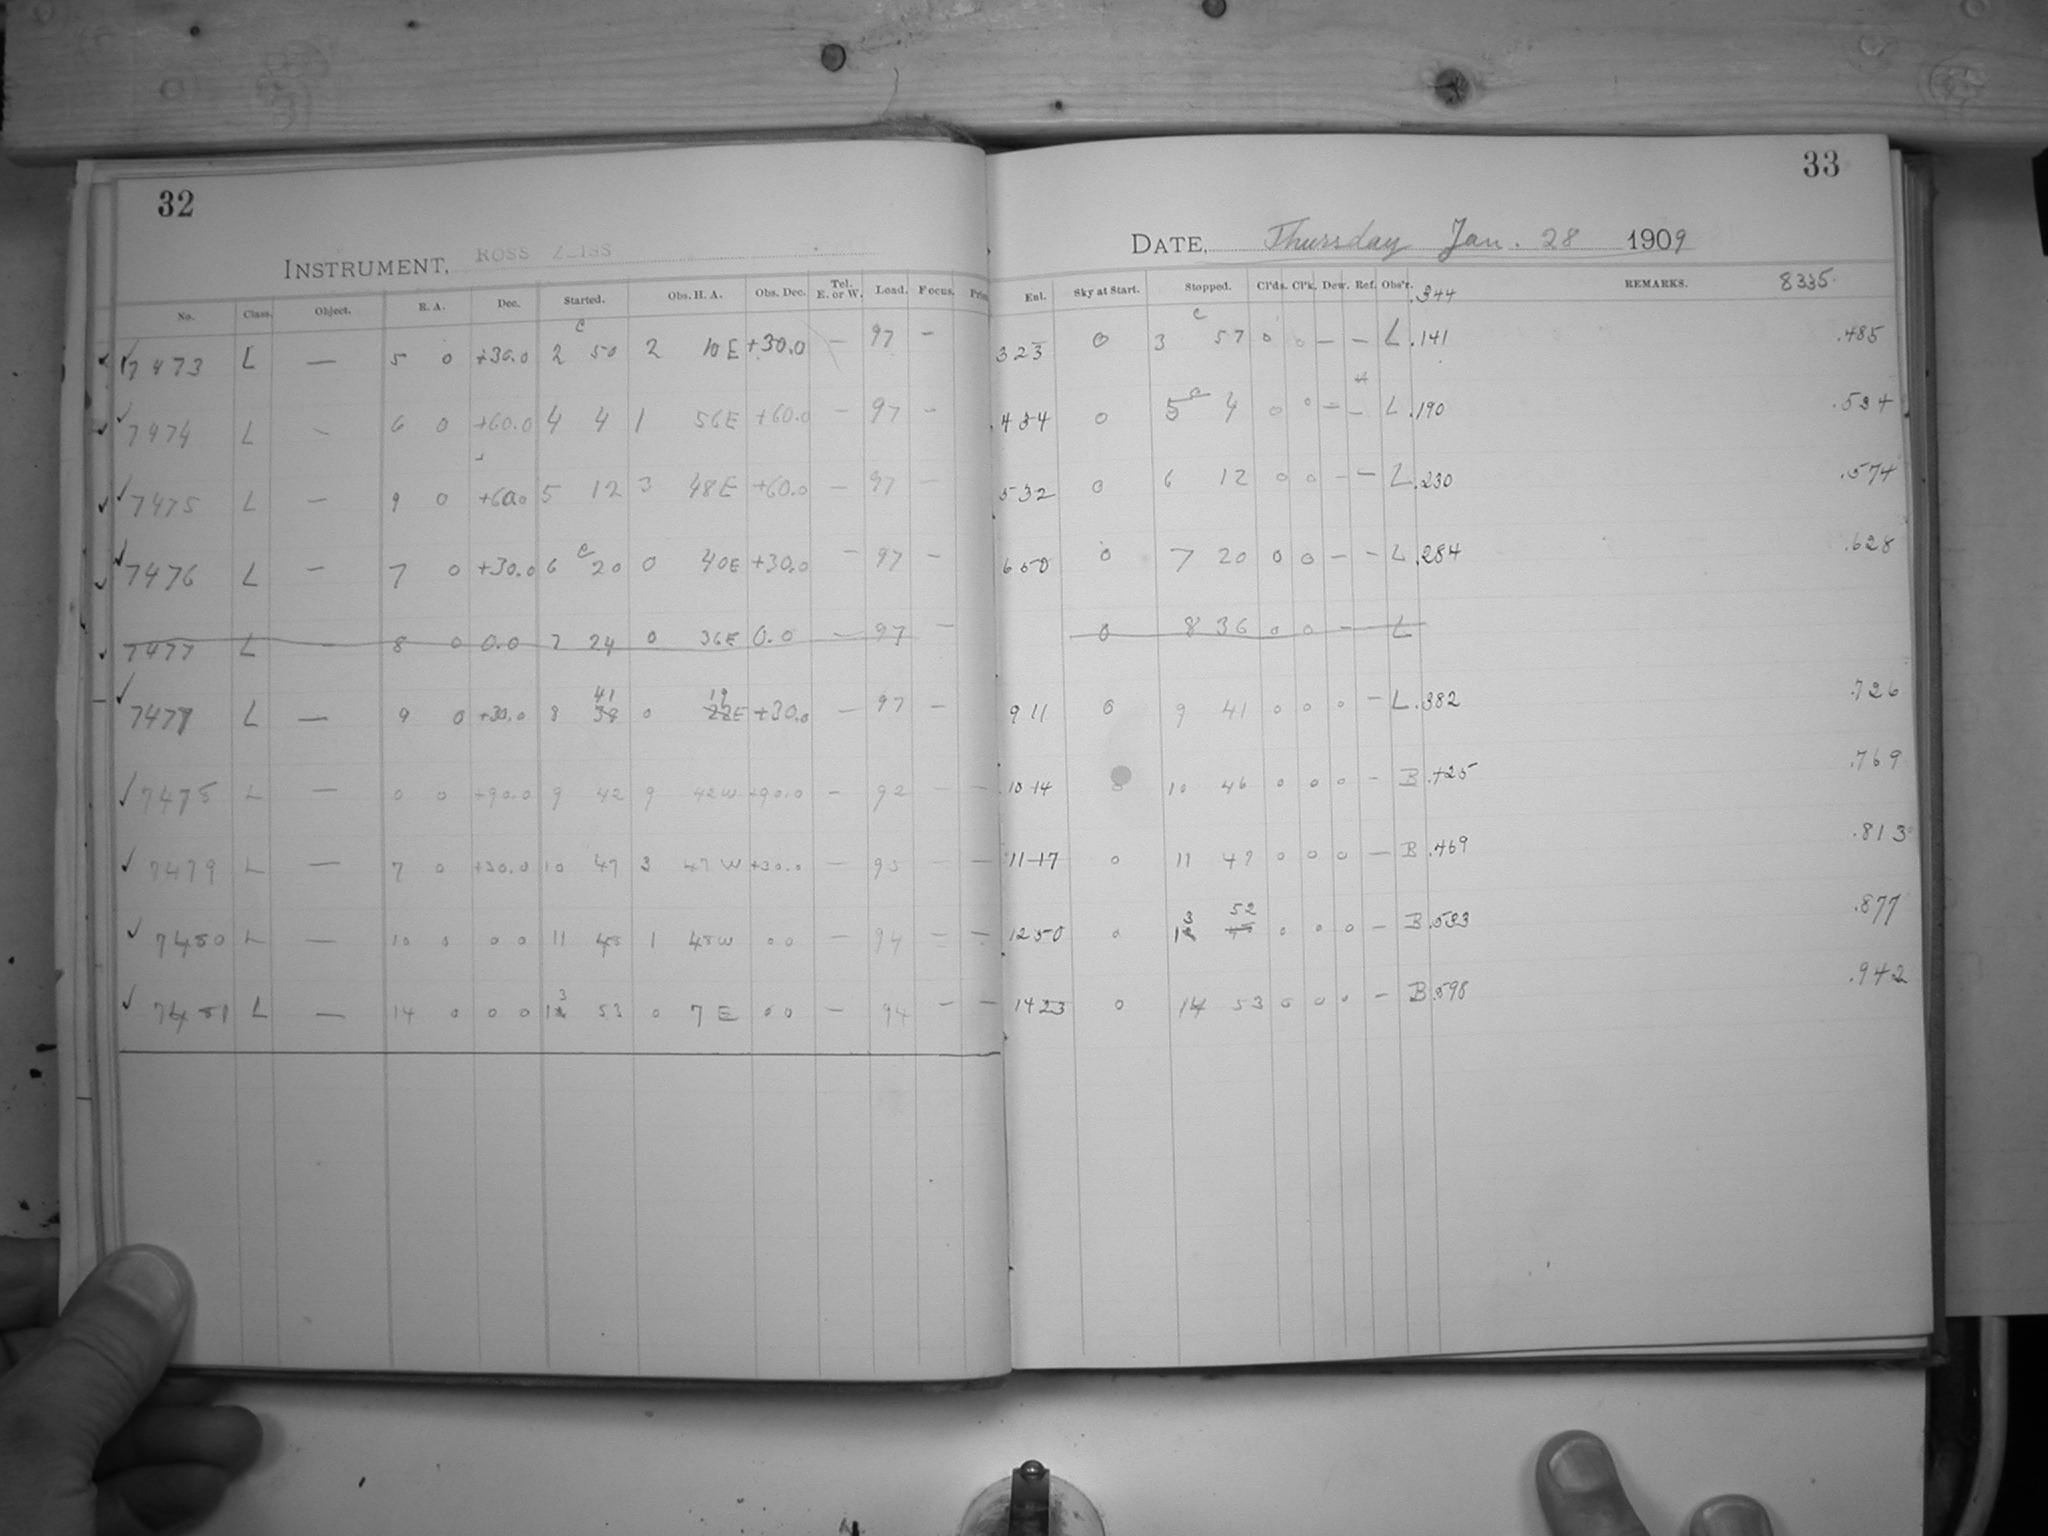 32
INSTRUMENT, ROSS ZEISS
No. Class. Object. R. A. Dec. Started. Obs. H. A. Obs. Dec. Tel. E. or W. Load. Focus.
7473 L — 5 0 +30.0 2 c 50 2 10 E +30.0 — 97 —
7474 L - 6 0 +60.0 4 4 1 56E +60.0 — 97 -
7475 L — 9 0 +60.0 5 12 3 48E +60.0 — 97 —
7476 L — 7 0 +30.0 6 c 20 0 40E +30.0 — 97 —
7477 L — 8 0 0.0 7 24 0 36E 0.0 — 97 —
7477 L — 9 0 +30.0 8 41 38 0 19 22E +30.0 — 97 —
7478 L — 0 0 +90.0 9 42 9 42W +90.0 — 92 — —
7479 L — 7 0 +30.0 10 47 3 47W +30.0 — 95 — —
7480 L — 10 0 0 0 11 48 1 48W 0 0 — 94 — —
7481 L — 14 0 0 0 13 53 0 7 E 0 0 — 94 — —
33
DATE, Thursday Jan. 28 1909
Ent. Sky at Start. Stopped. Cl'ds. Cl'k. Dew. Ref. Obs'r. .344 REMARKS. 8335.
323 0 3 c 57 0 0 — — L .141 .485
434 0 5 c 4 0 0 — — L .190 .534
532 0 6 12 0 0 - — L .230 .574
650 0 7 20 0 0 — — L .284 .628
0 8 36 0 0 — L
9 11 0 9 41 0 0 0 — L .382 .726
10 14 10 46 0 0 0 — B .425 .769
11 17 0 11 47 0 0 0 — B .469 .813
12 50 0 13 52 0 0 0 — B .533 .877
14 23 0 14 53 0 0 0 — B .598 .942